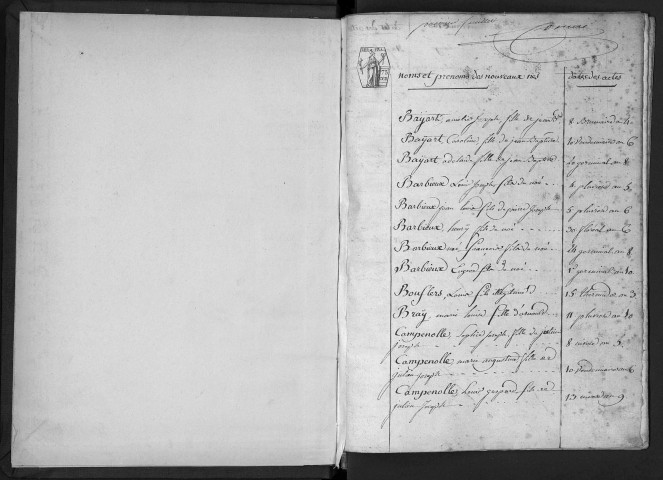 noms et prenoms des nouveaux nés dates des actes
Bayart, amelie joseph, fille de jean Bte 8
Bayart, Caroline fille de jean baptiste 10 vendemiaire an 6
Bayart adelaide fille de jean baptiste germinal an 8
Barbieux Louis joseph fils de noé 4 pluviose an 5
Barbieux jean louis fils de pierre joseph 5 pluviose an 6
Barbieux henry fils de noé 30 floreal an 6
Barbieux noé françois fils de noé 14 germinal an 8
Barbieux fils de noé 1er germinal an 10
Bouflers, Louise fille 15 thermidor an 3
Bray, marie louise fille d' 11 pluviose an 10
Campenolle, Sophie joseph, fille de julien
joseph 8 nivose an 5
Campenolle, marie augustine fille de
julien joseph 10 vendemiaire an 6
Campenolle, Louis gaspard fils de
julien joseph 13 nivose an 9